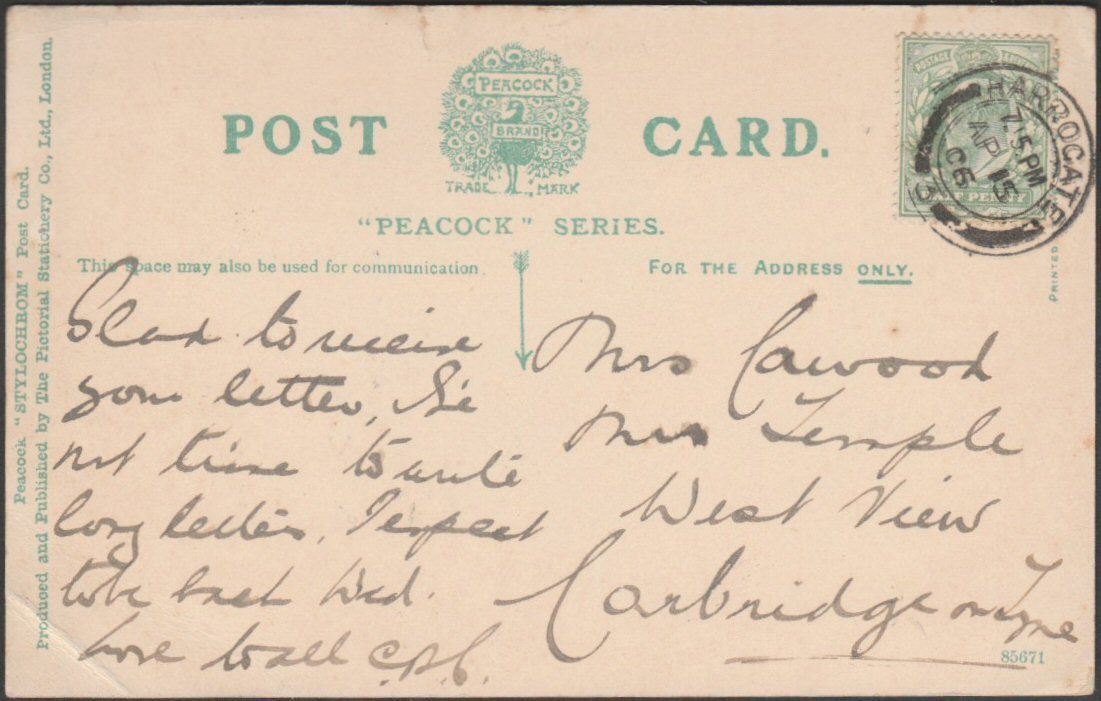 Peacock "STYLOCHROM" Post Card.
Produced and Published by The Pictorial Stationery Co., Ltd., London.
POST CARD.
PEACOCK
BRAND
TRADE MARK
"PEACOCK" SERIES.
This space may also be used for communication.
FOR THE ADDRESS ONLY.
POSTAGE
HALF PENNY
HARROGATE
7.15 PM
AP 15
06
PRINTED
Glad to receive
your letter,
not time to write
long letter, I expect
to be back Wed.
love to all
Mrs Cawood
Mrs Temple
West View
Corbridge on Tyne
85671